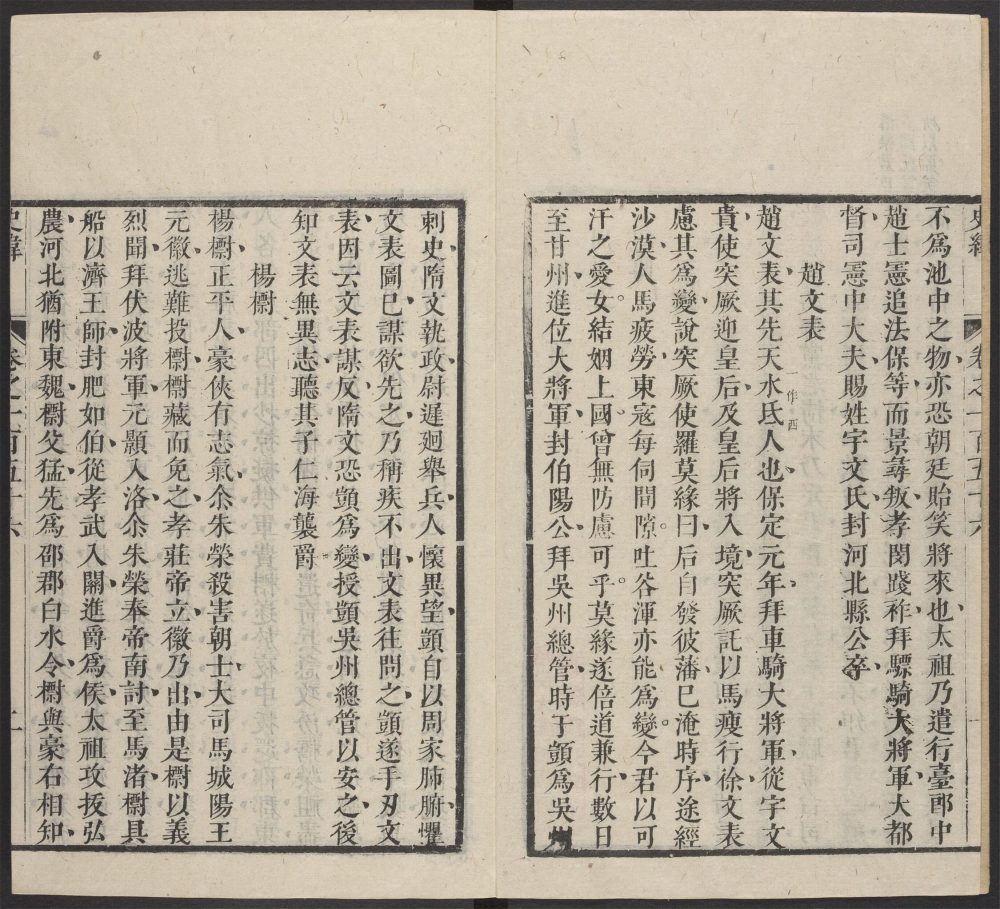 不爲池中之物亦恐朝廷貽笑將來也太祖乃遣行臺郎中
趙士憲追法保等而景尋叛孝閔踐祚拜驃騎大將軍大都
督司憲中大夫賜姓宇文氏封河北縣公卒
趙文表
趙文表其先天水氐人也保定元年拜車騎大將軍從宇文
一作西
貴使突厥迎皇后及皇后將入境突厥託以馬瘦行徐文表
慮其爲變說突厥使羅莫緣曰后自發彼藩已淹時序途經
沙漠人馬疲勞東寇每伺間隙吐谷渾亦能爲變今君以可
汗之愛女結姻上國曾無防慮可乎莫緣遂倍道兼行數日
至甘州進位大將軍封伯陽公拜吳州總管時于顗爲吳州
刺史隋文執政尉遲迥舉兵人懷異望顗自以周家肺腑懼
文表圖已謀欲先之乃稱疾不出文表往問之顗遂手刃文
表因云文表謀反隋文恐顗爲變授顗吳州總管以安之後
知文表無異志聽其子仁海襲爵
楊㯹
楊㯹正平人豪俠有志氣尒朱榮殺害朝士大司馬城陽王
元徽逃難投㯹㯹藏而免之孝莊帝立徽乃出由是㯹以義
烈聞拜伏波將軍元顥入洛尒朱榮奉帝南討至馬渚㯹具
船以濟王師封肥如伯從孝武入關進爵爲侯太祖攻拔弘
農河北猶附東魏㯹父猛先爲邵郡白水令㯹與豪右相知
史緯
卷之一百五十六
二